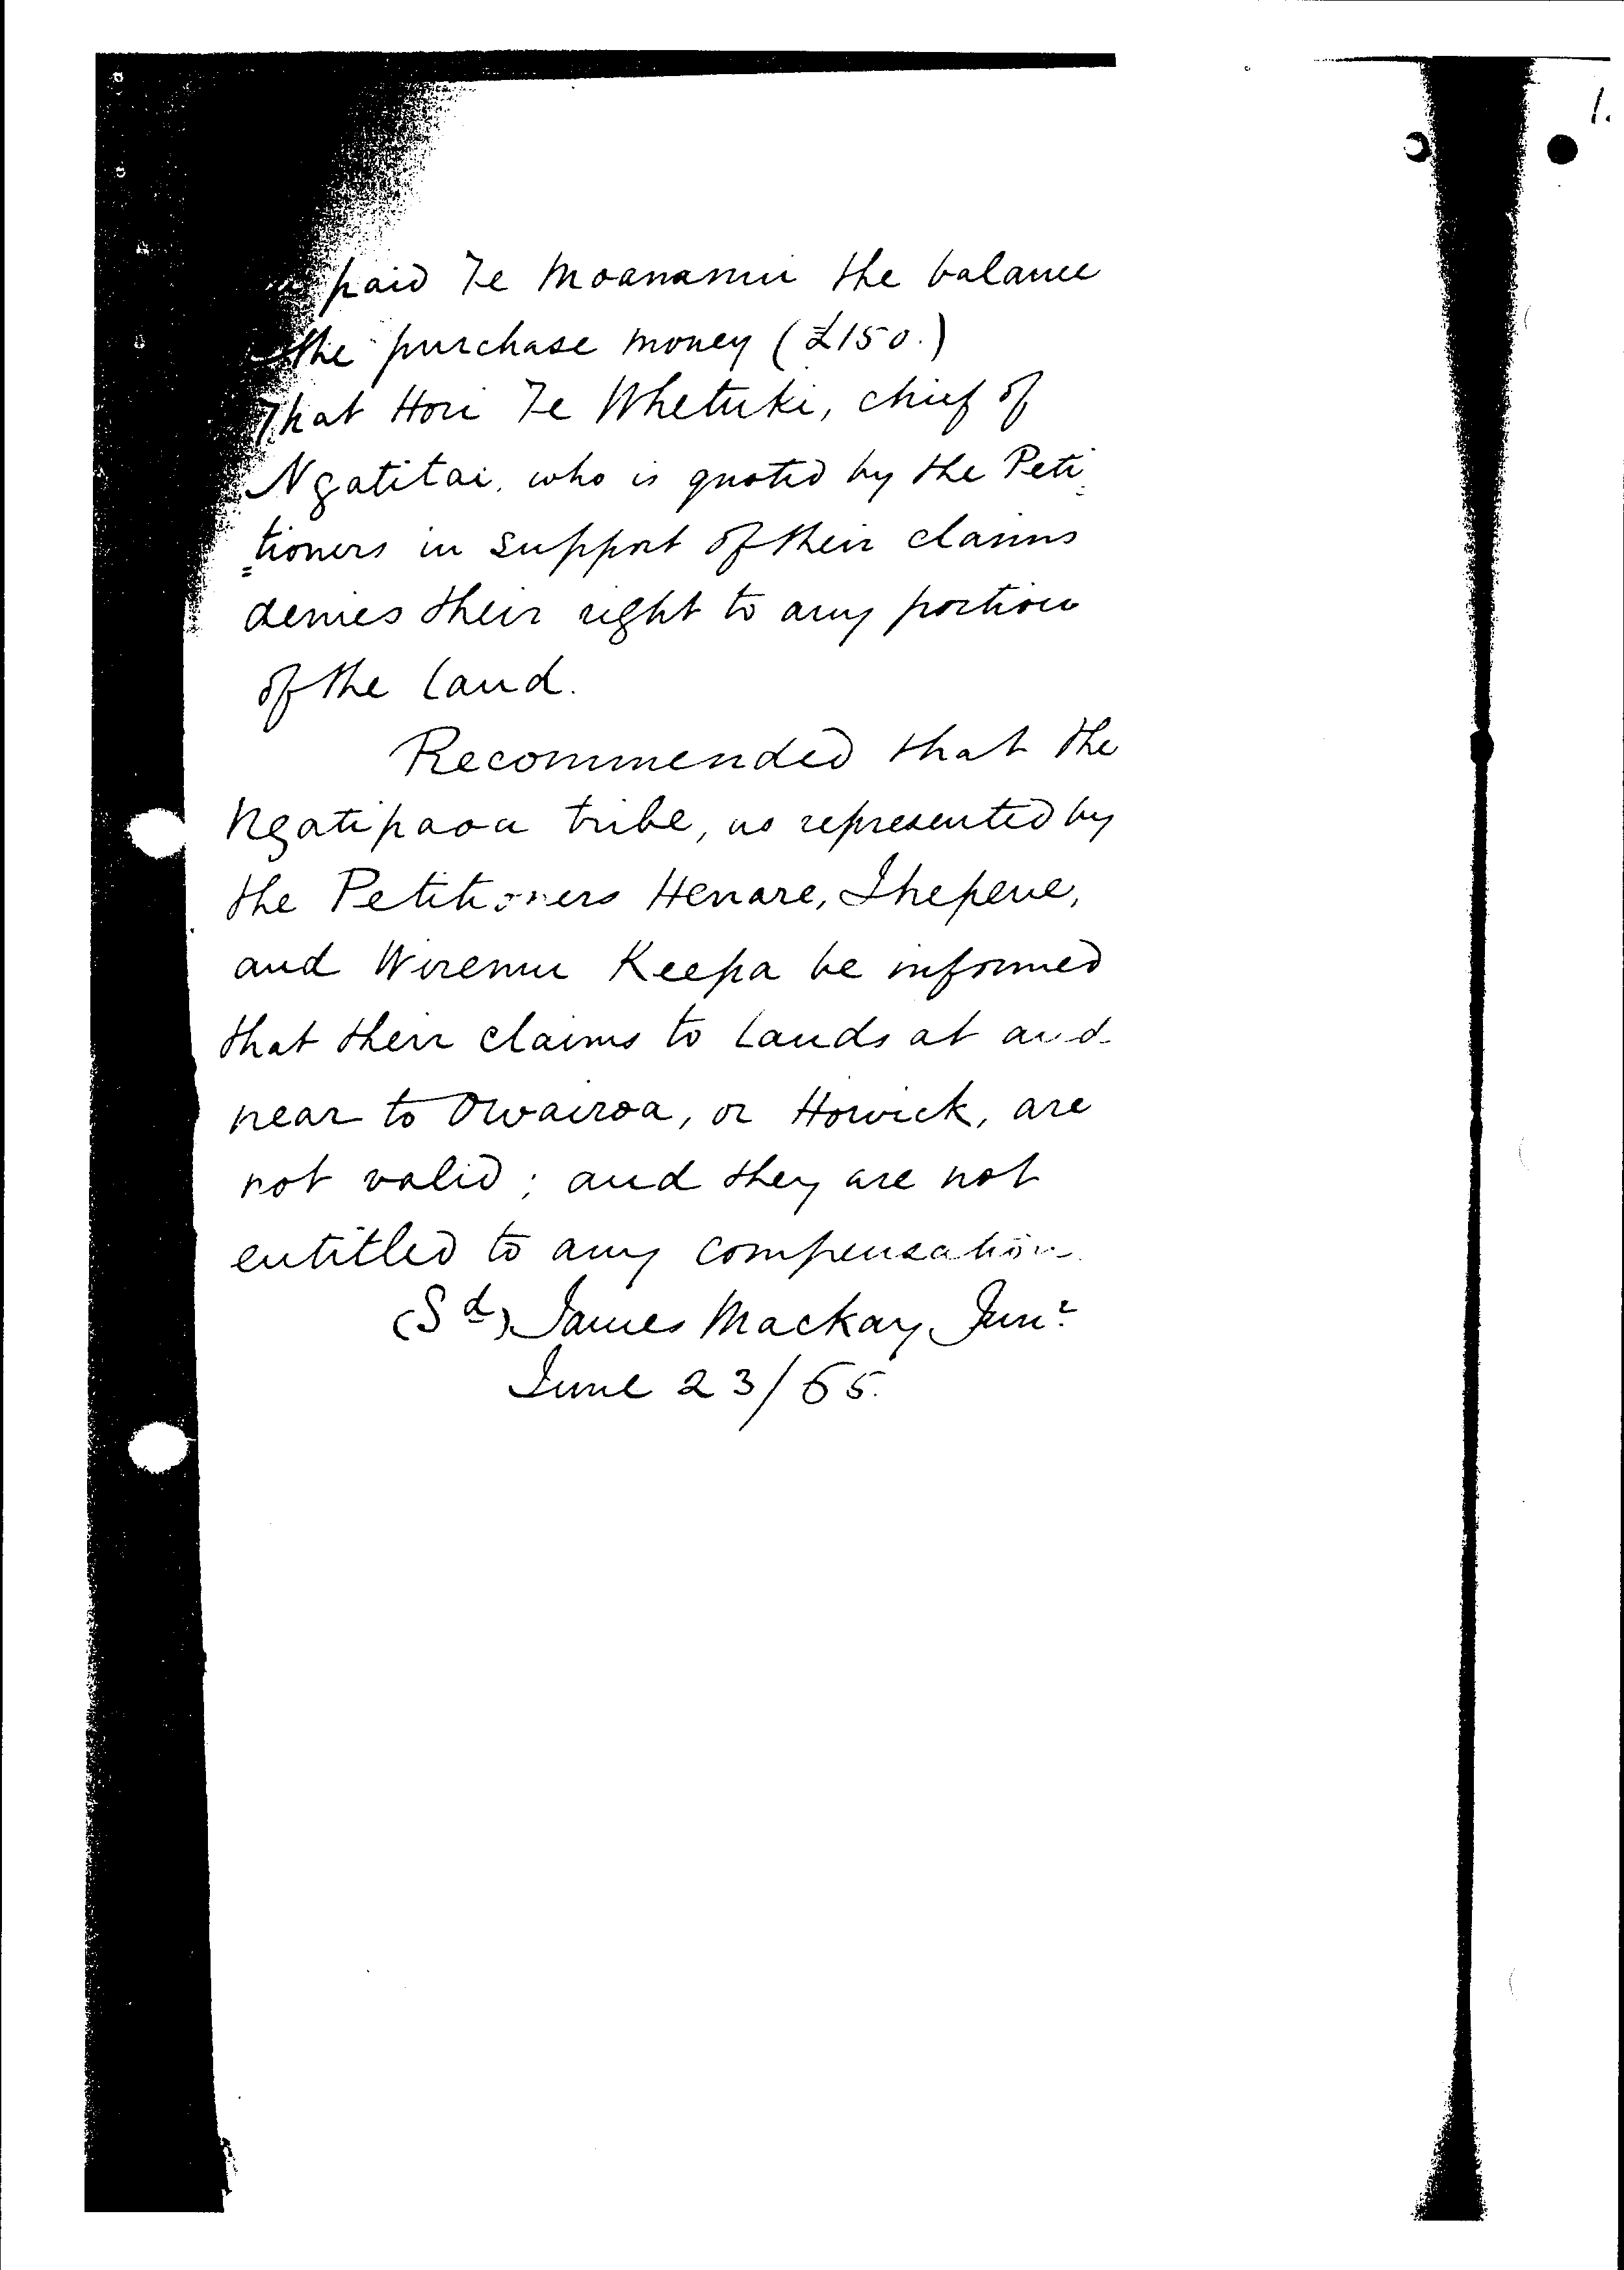 1.
paid Te Moananui the balance
the purchase money (£150.)
That Hori Te Whetuki, chief of
Ngatitai, who is quoted by the Peti
=tioners in support of their claims
denies their right to any portion
of the land.
Recommended that the
Ngatipaoa tribe, as represented by
the Petitioners Henare, Ihepene,
and Wiremu Keepa be informed
that their claims to lands at and
near to Owairoa, or Howick, are
not valid; and they are not
entitled to any compensation.
(Sd) James Mackay Junr
June 23/65.